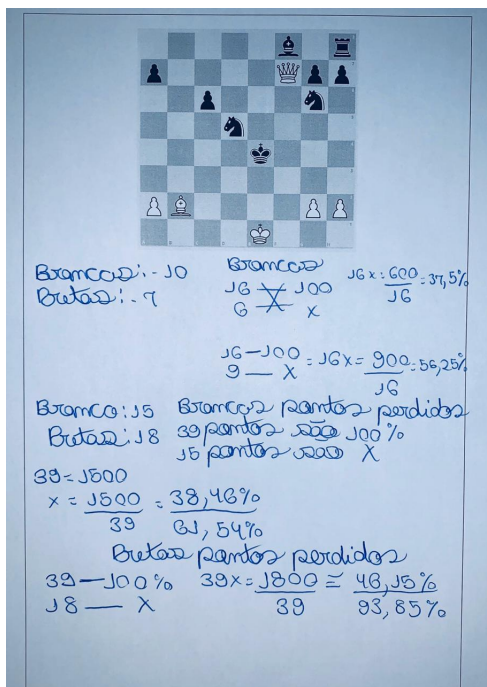 Brancas:- 10
Pretas:- 7
Brancas
16 100
6 x
16x = 600 = 37,5%
16
16-100 = 16x = 900 = 56,25%
9 — x 16
Branco: 15
Pretas: 18
Brancas pontos perdidos
39 pontos são 100%
15 pontos sao X
39 = 1500
x = 1500 = 38,46%
39 61,54%
Pretas pontos perdidos
39 — 100% 39x = 1800 ≅ 46,15%
18 — X 39 93,85%